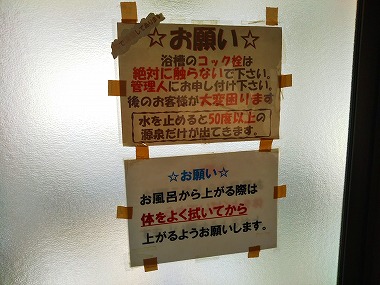 ☆お願い☆
浴槽のコック栓は
絶対に触らないで下さい。
管理人にお申し付け下さい。
後のお客様が大変困ります
水を止めると50度以上の
源泉だけが出てきます。
☆お願い☆
お風呂から上がる際は
体をよく拭いてから
上がるようお願いします。